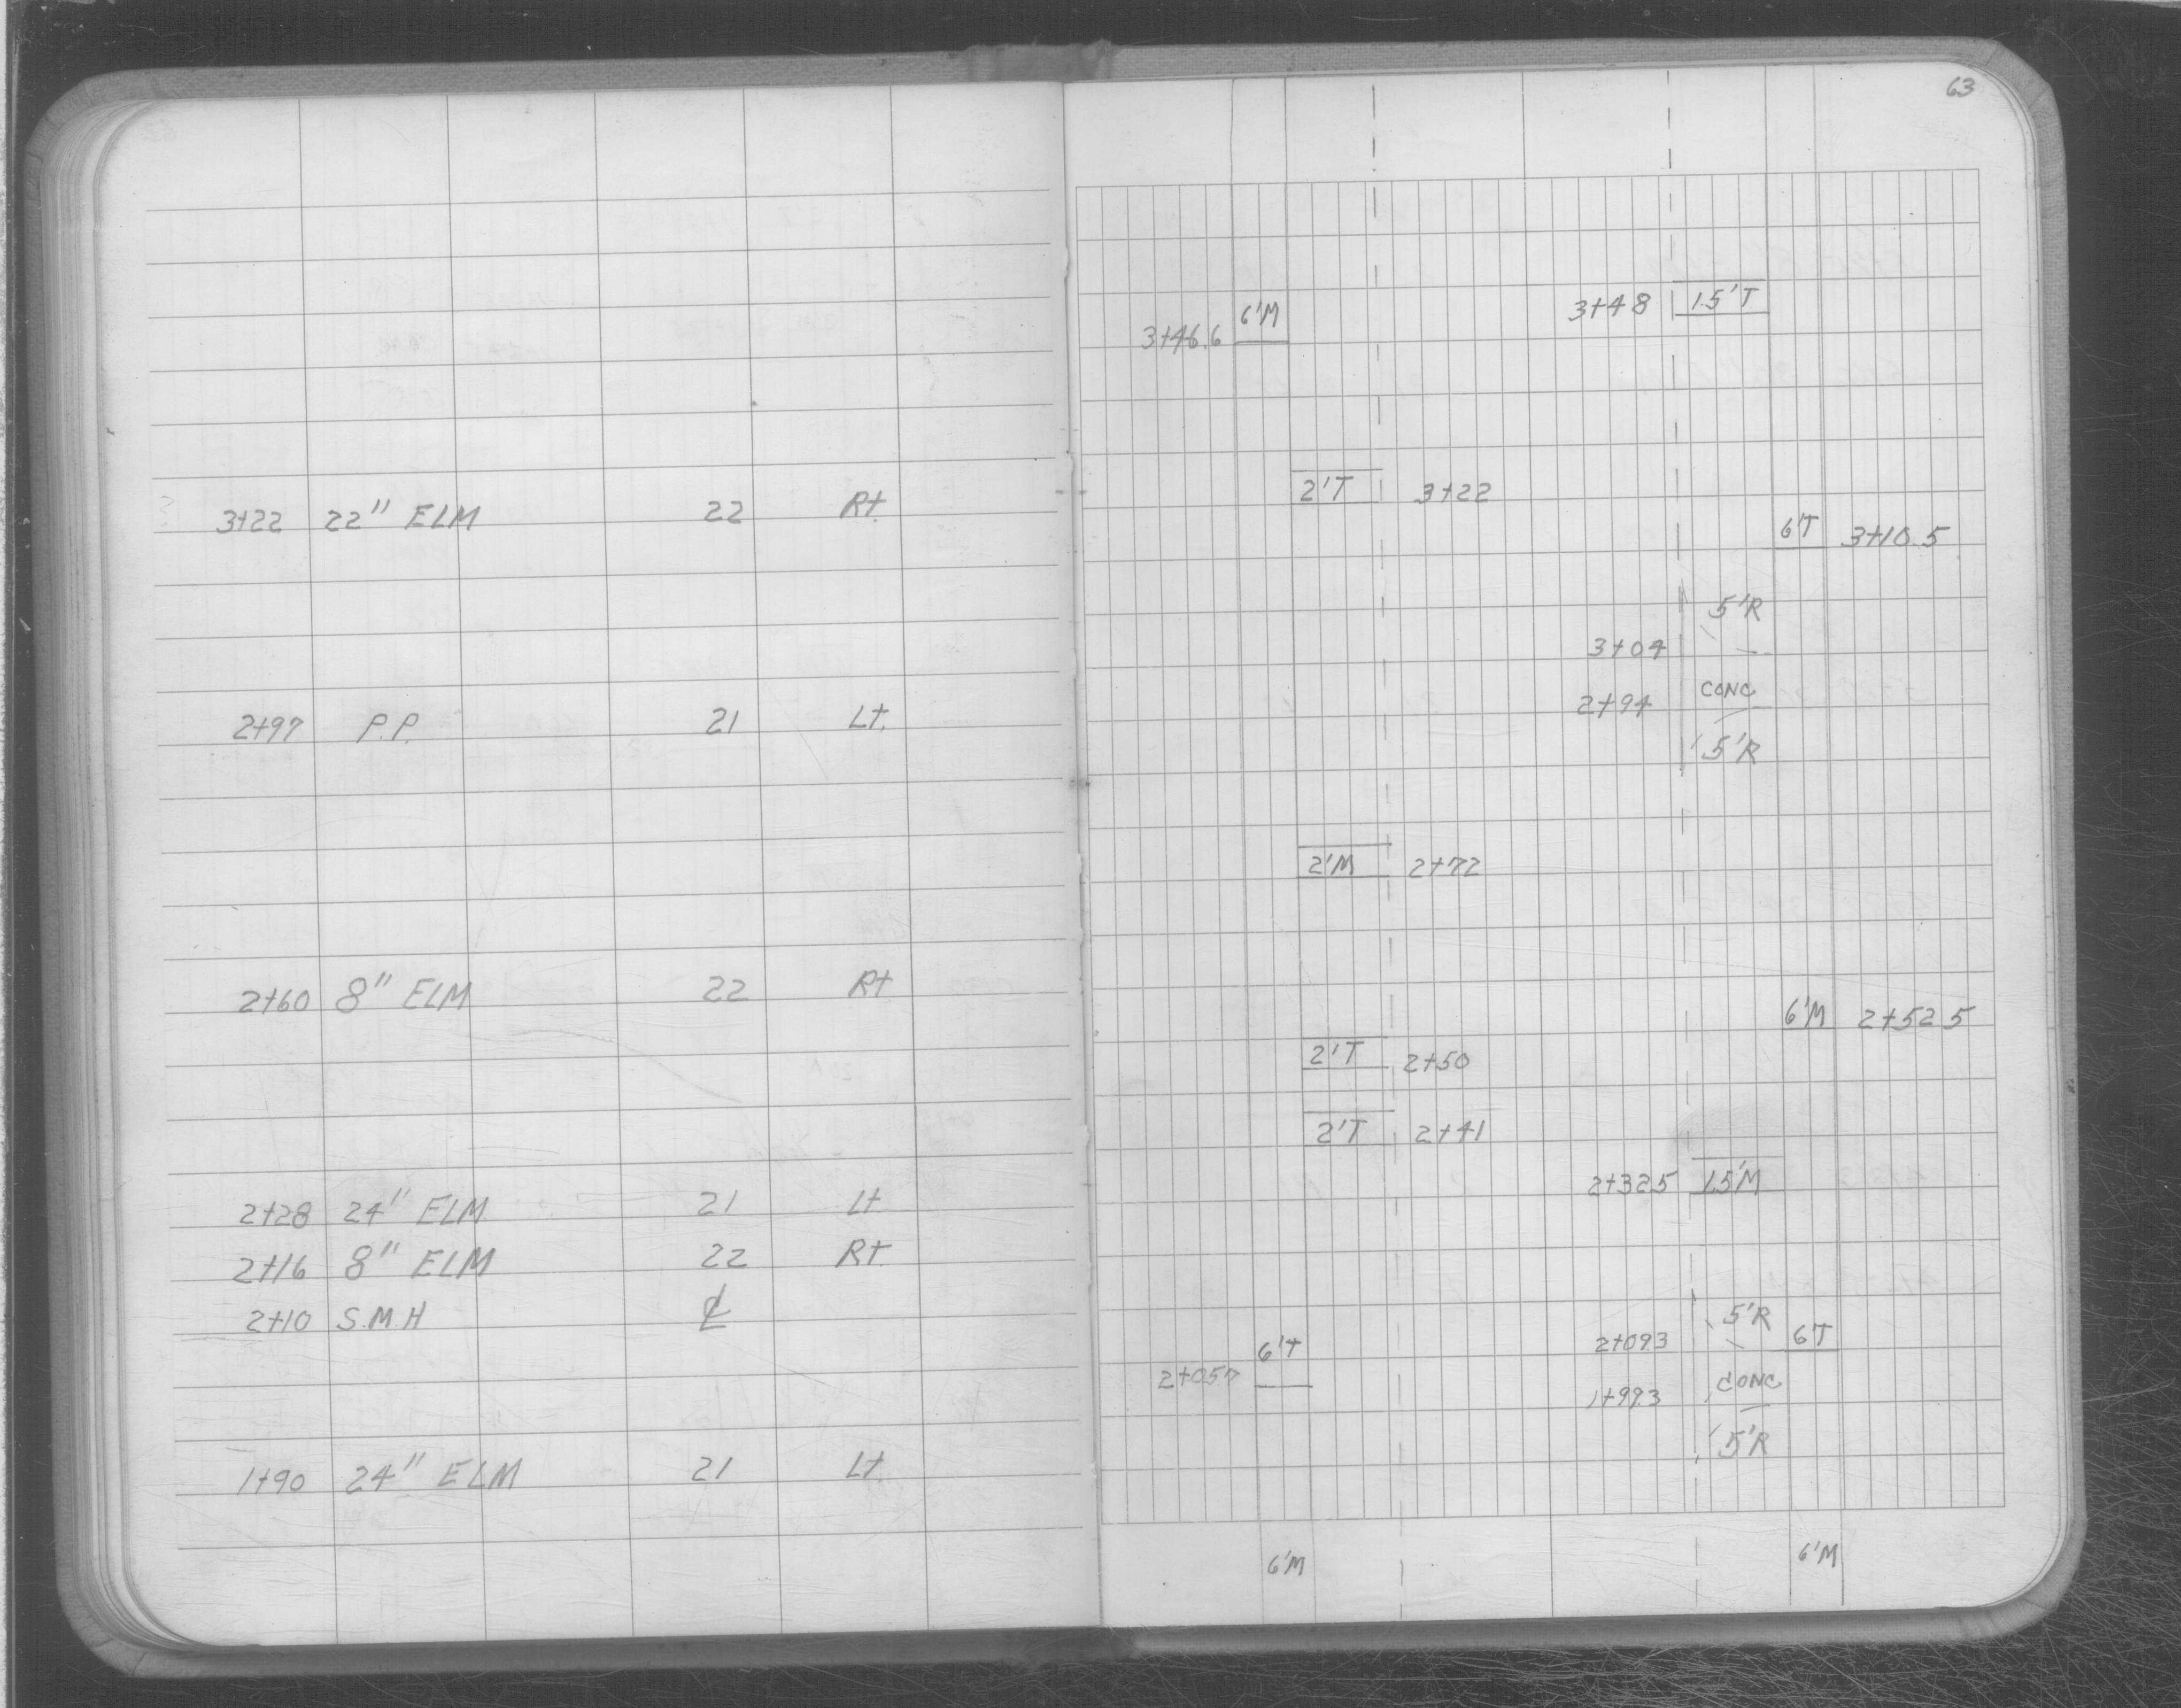 3+22 22" ELM 22 Rt.
2+97 P.P. 21 Lt.
2+60 8" ELM 22 Rt
2+28 24" ELM 21 Lt
2+16 8" ELM 22 Rt.
2+10 S.M.H ℄
1+90 24" ELM 21 Lt.
63
3+48 1.5'T
3+46.6 6'M
2'T 3+22
6'T 3+10.5
5'R
3+04
2+94 CONC
5'R
2'M 2+72
6'M 2+52.5
2'T 2+50
2'T 2+41
2+32.5 1.5'M
5'R
2+09.3 6'T
2+05.7 6'T
1+99.3 CONC
5'R
6'M 6'M